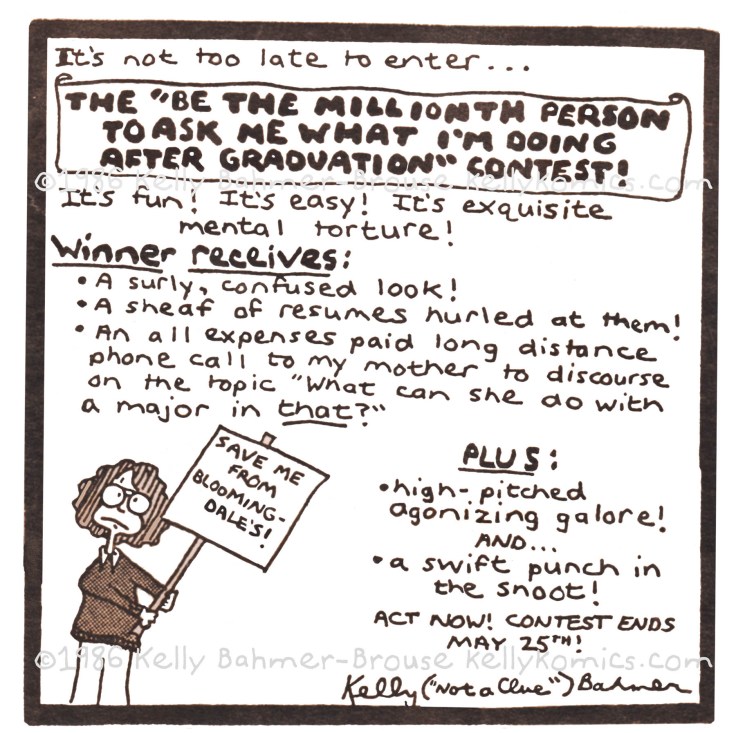 It's not too late to enter...
THE "BE THE MILLIONTH PERSON
TO ASK ME WHAT I'M DOING
AFTER GRADUATION" CONTEST!
©1986 Kelly Bahmer-Brouse kellykomics.com
It's fun! It's easy! It's exquisite
mental torture!
Winner receives:
• A surly, confused look!
• A sheaf of resumes hurled at them!
• An all expenses paid long distance
phone call to my mother to discourse
on the topic "What can she do with
a major in that?"
SAVE ME
FROM
BLOOMING-
DALE'S!
PLUS:
• high-pitched
agonizing galore!
AND...
• a swift punch in
the snoot!
ACT NOW! CONTEST ENDS
MAY 25TH!
©1986 Kelly Bahmer-Brouse kellykomics.com
Kelly ("Not a Clue") Bahmer